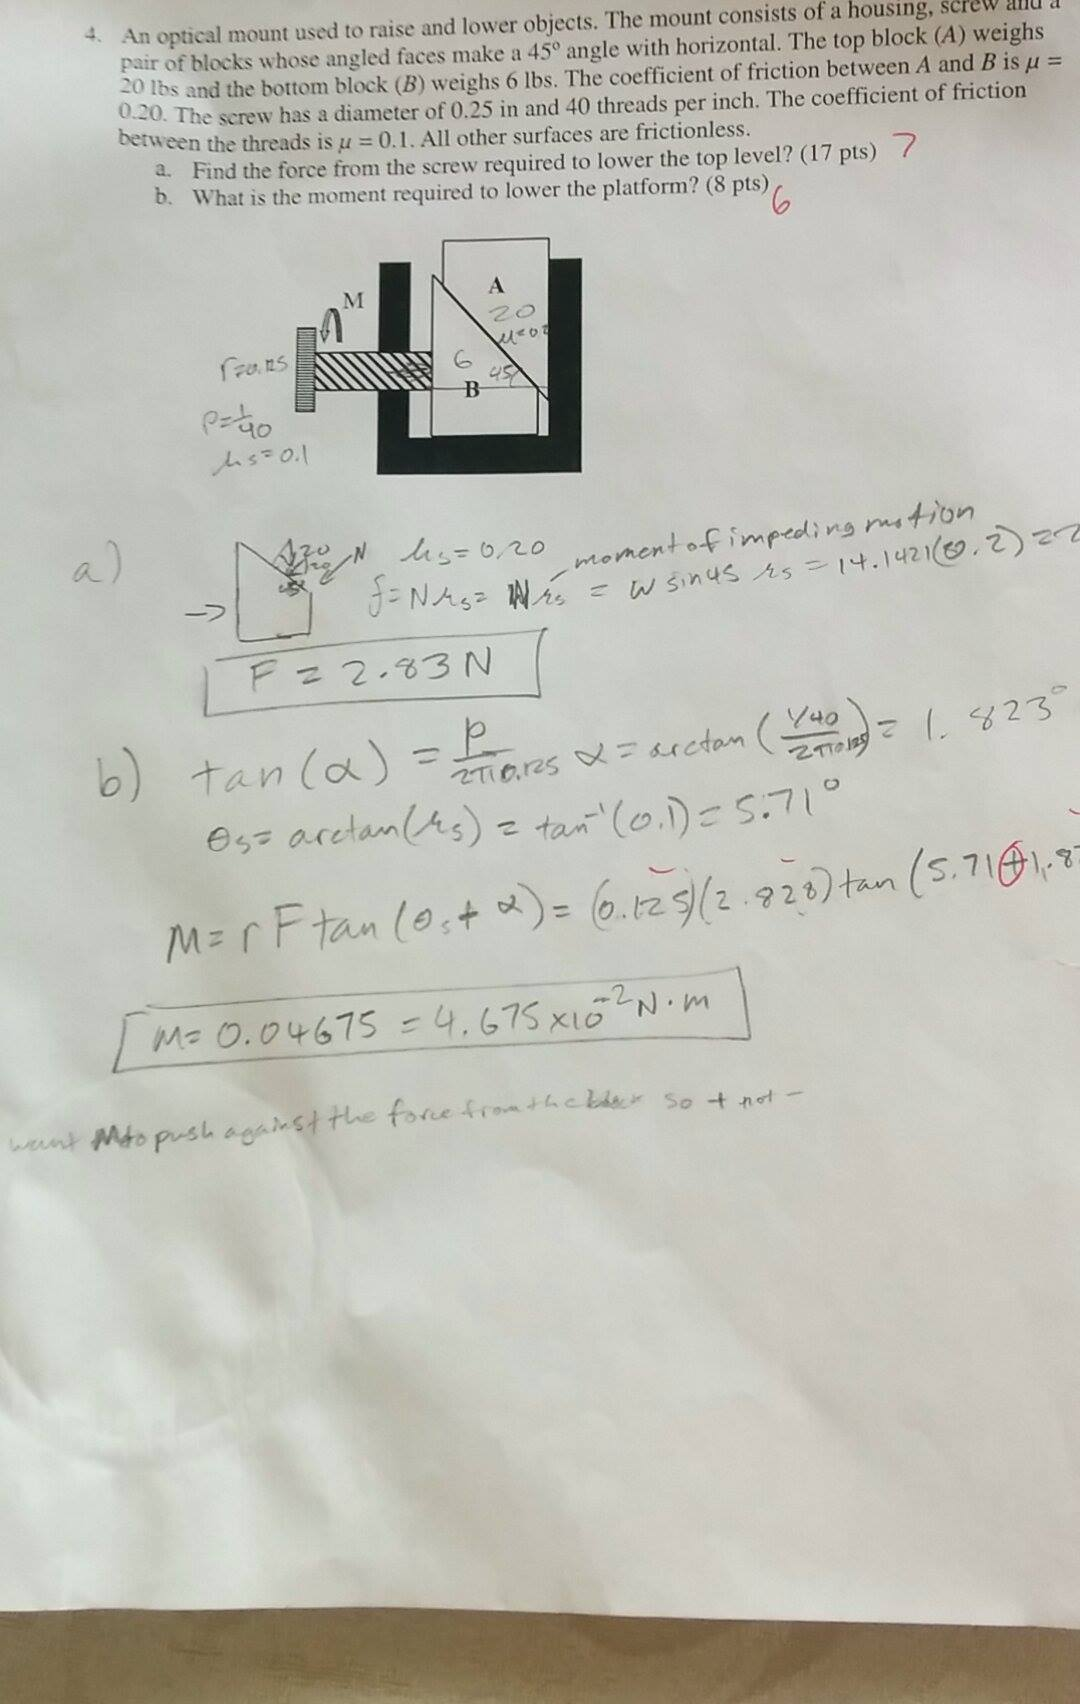 4. An optical mount used to raise and lower objects. The mount consists of a housing, screw and a
pair of blocks whose angled faces make a 45° angle with horizontal. The top block (A) weighs
20 lbs and the bottom block (B) weighs 6 lbs. The coefficient of friction between A and B is μ =
0.20. The screw has a diameter of 0.25 in and 40 threads per inch. The coefficient of friction
between the threads is μ = 0.1. All other surfaces are frictionless.
a. Find the force from the screw required to lower the top level? (17 pts) 7
b. What is the moment required to lower the platform? (8 pts) 6
M
A
20
μ=0.2
r=0.125
6
45
B
P=1/40
μs=0.1
a)
20
N
μs=0.20
moment of impeding motion
f=Nμs= Wμs = W sin45 μs = 14.1421(0.2)=2
F = 2.83 N
b) tan(α) = p/2π0.125 α = arctan((1/40)/2π0.125) = 1.823°
θs= arctan(μs) = tan⁻¹(0.1) = 5.71°
M= r F tan(θs+α) = (0.125)(2.828) tan (5.71+1.8
M= 0.04675 = 4.675x10⁻² N·m
want M to push against the force from the block so + not -